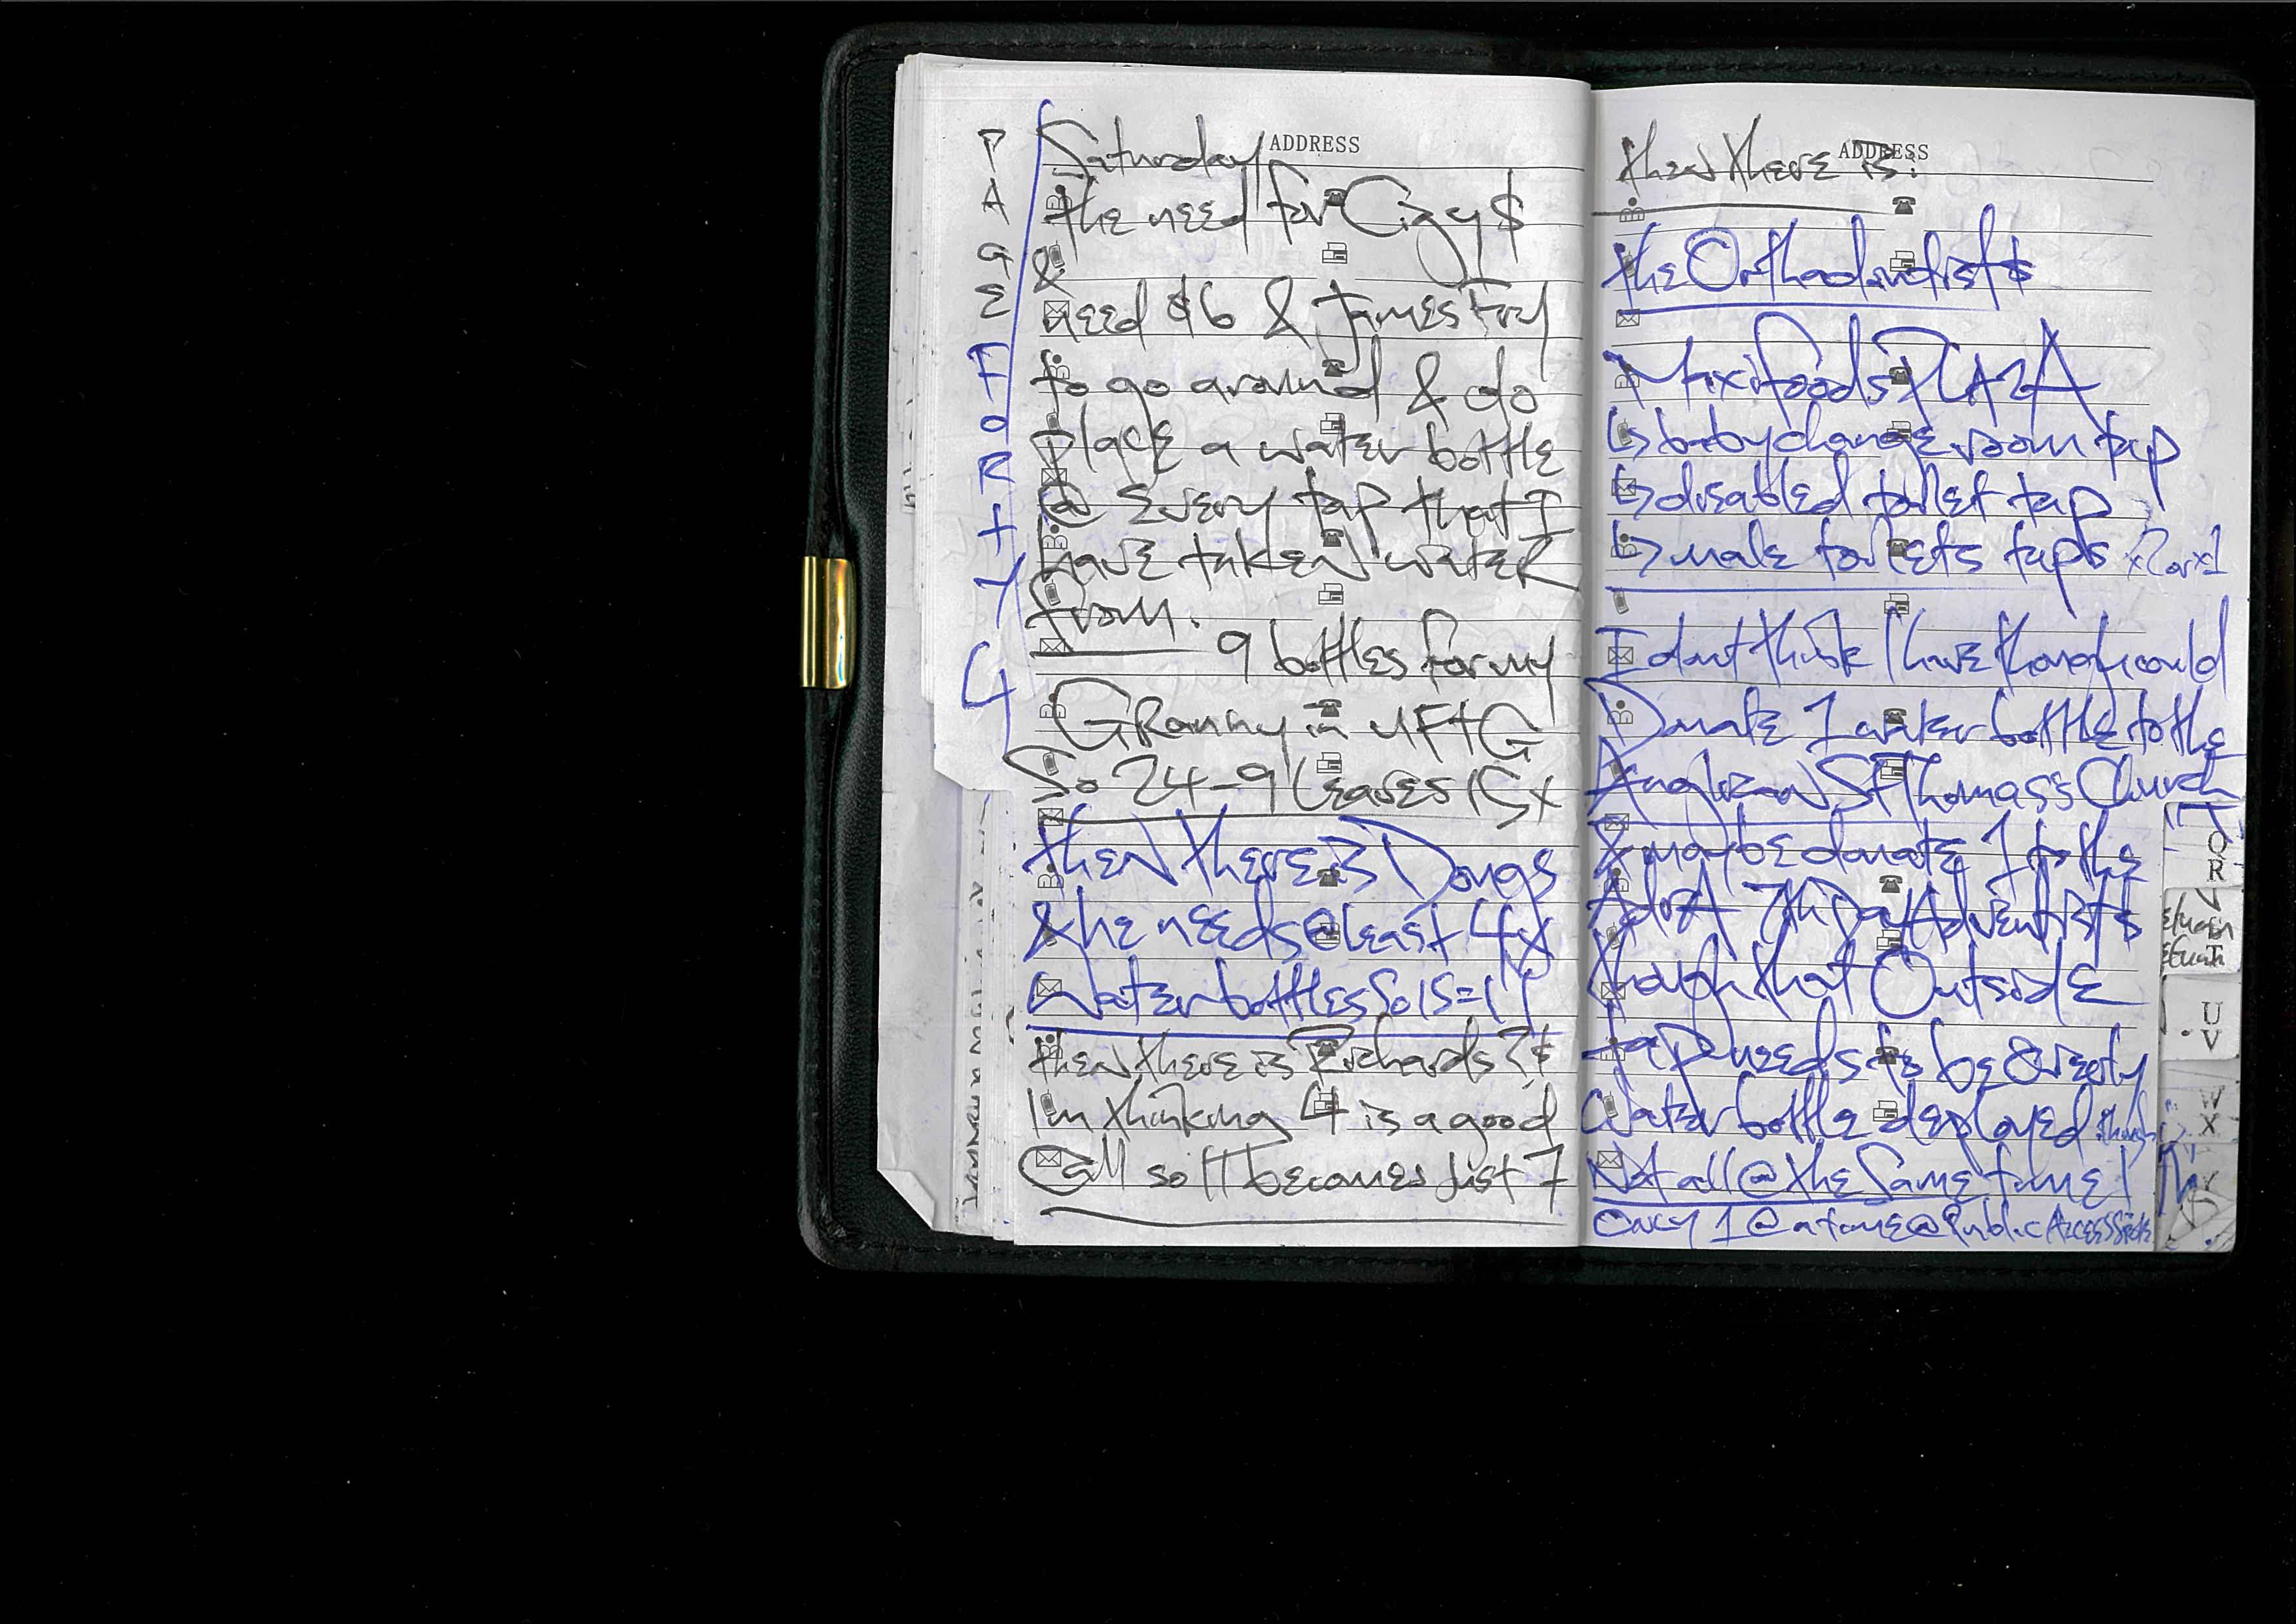 PAGE FORTY 4
ADDRESS
Saturday
the need for Cigy$
&
need $6 & James try
to go around & do
place a water bottle
@ Every tap that I
have taken water
from.
9 bottles for my
Granny in UFTG
So 24-9 leaves 15x
then there is Dougs
& he needs @ least 4x
Water bottles So 15=11
then there is Richards?$
I'm thinking 4 is a good
Call so 11 becomes Just 7
ADDRESS
then there is:
the Orthodontist$
Maxi foods PLAZA
↳ baby change room tap
↳ disabled toilet tap
↳ male toilets taps x2 or x1
I dont think I have though could
Donate 1 water bottle to the
Anglican St Thomas's Church
& maybe donate 1 to the
AdrA 7th Day Adventist$
though that Outside
tap needs to be
Water bottle deployed though
Not all @ the Same time!
Only 1 @ a time @ Public
Q
R
T
U
V
W
X
Y